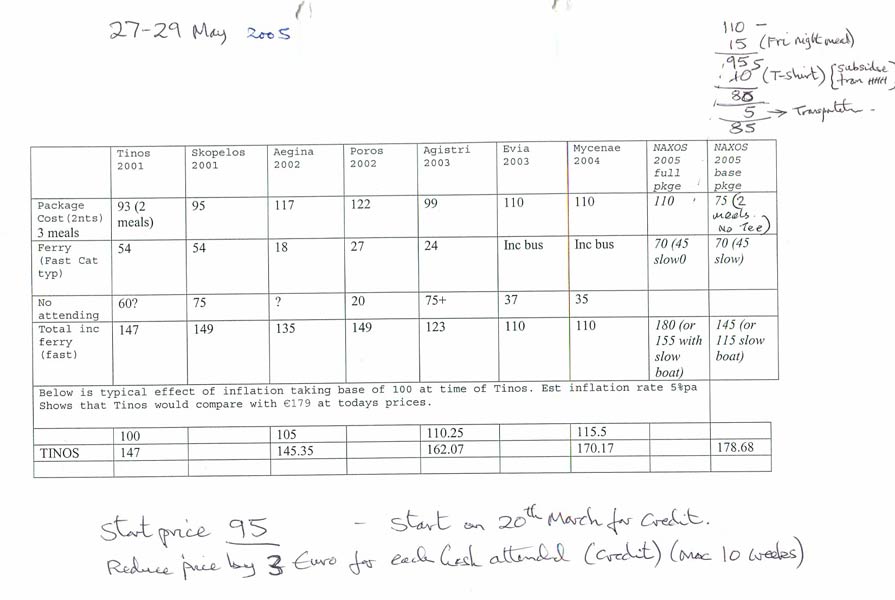 27-29 May 2005
110 -
15 (Fri night meal)
95
10 (T-shirt) [Subsidise from HHH
85
5 → Transportation -
85
Tinos 2001 Skopelos 2001 Aegina 2002 Poros 2002 Agistri 2003 Evia 2003 Mycenae 2004 NAXOS 2005 full pkge NAXOS 2005 base pkge
Package Cost(2nts) 3 meals 93 (2 meals) 95 117 122 99 110 110 110 75 (2 meals. No Tee)
Ferry (Fast Cat typ) 54 54 18 27 24 Inc bus Inc bus 70 (45 slow0 70 (45 slow)
No attending 60? 75 ? 20 75+ 37 35
Total inc ferry (fast) 147 149 135 149 123 110 110 180 (or 155 with slow boat) 145 (or 115 slow boat)
Below is typical effect of inflation taking base of 100 at time of Tinos. Est inflation rate 5%pa
Shows that Tinos would compare with €179 at todays prices.
100 105 110.25 115.5
TINOS 147 145.35 162.07 170.17 178.68
Start price 95 - Start on 20th March for Credit.
Reduce price by 3 Euro for each hash attended (Credit) (max 10 weeks)